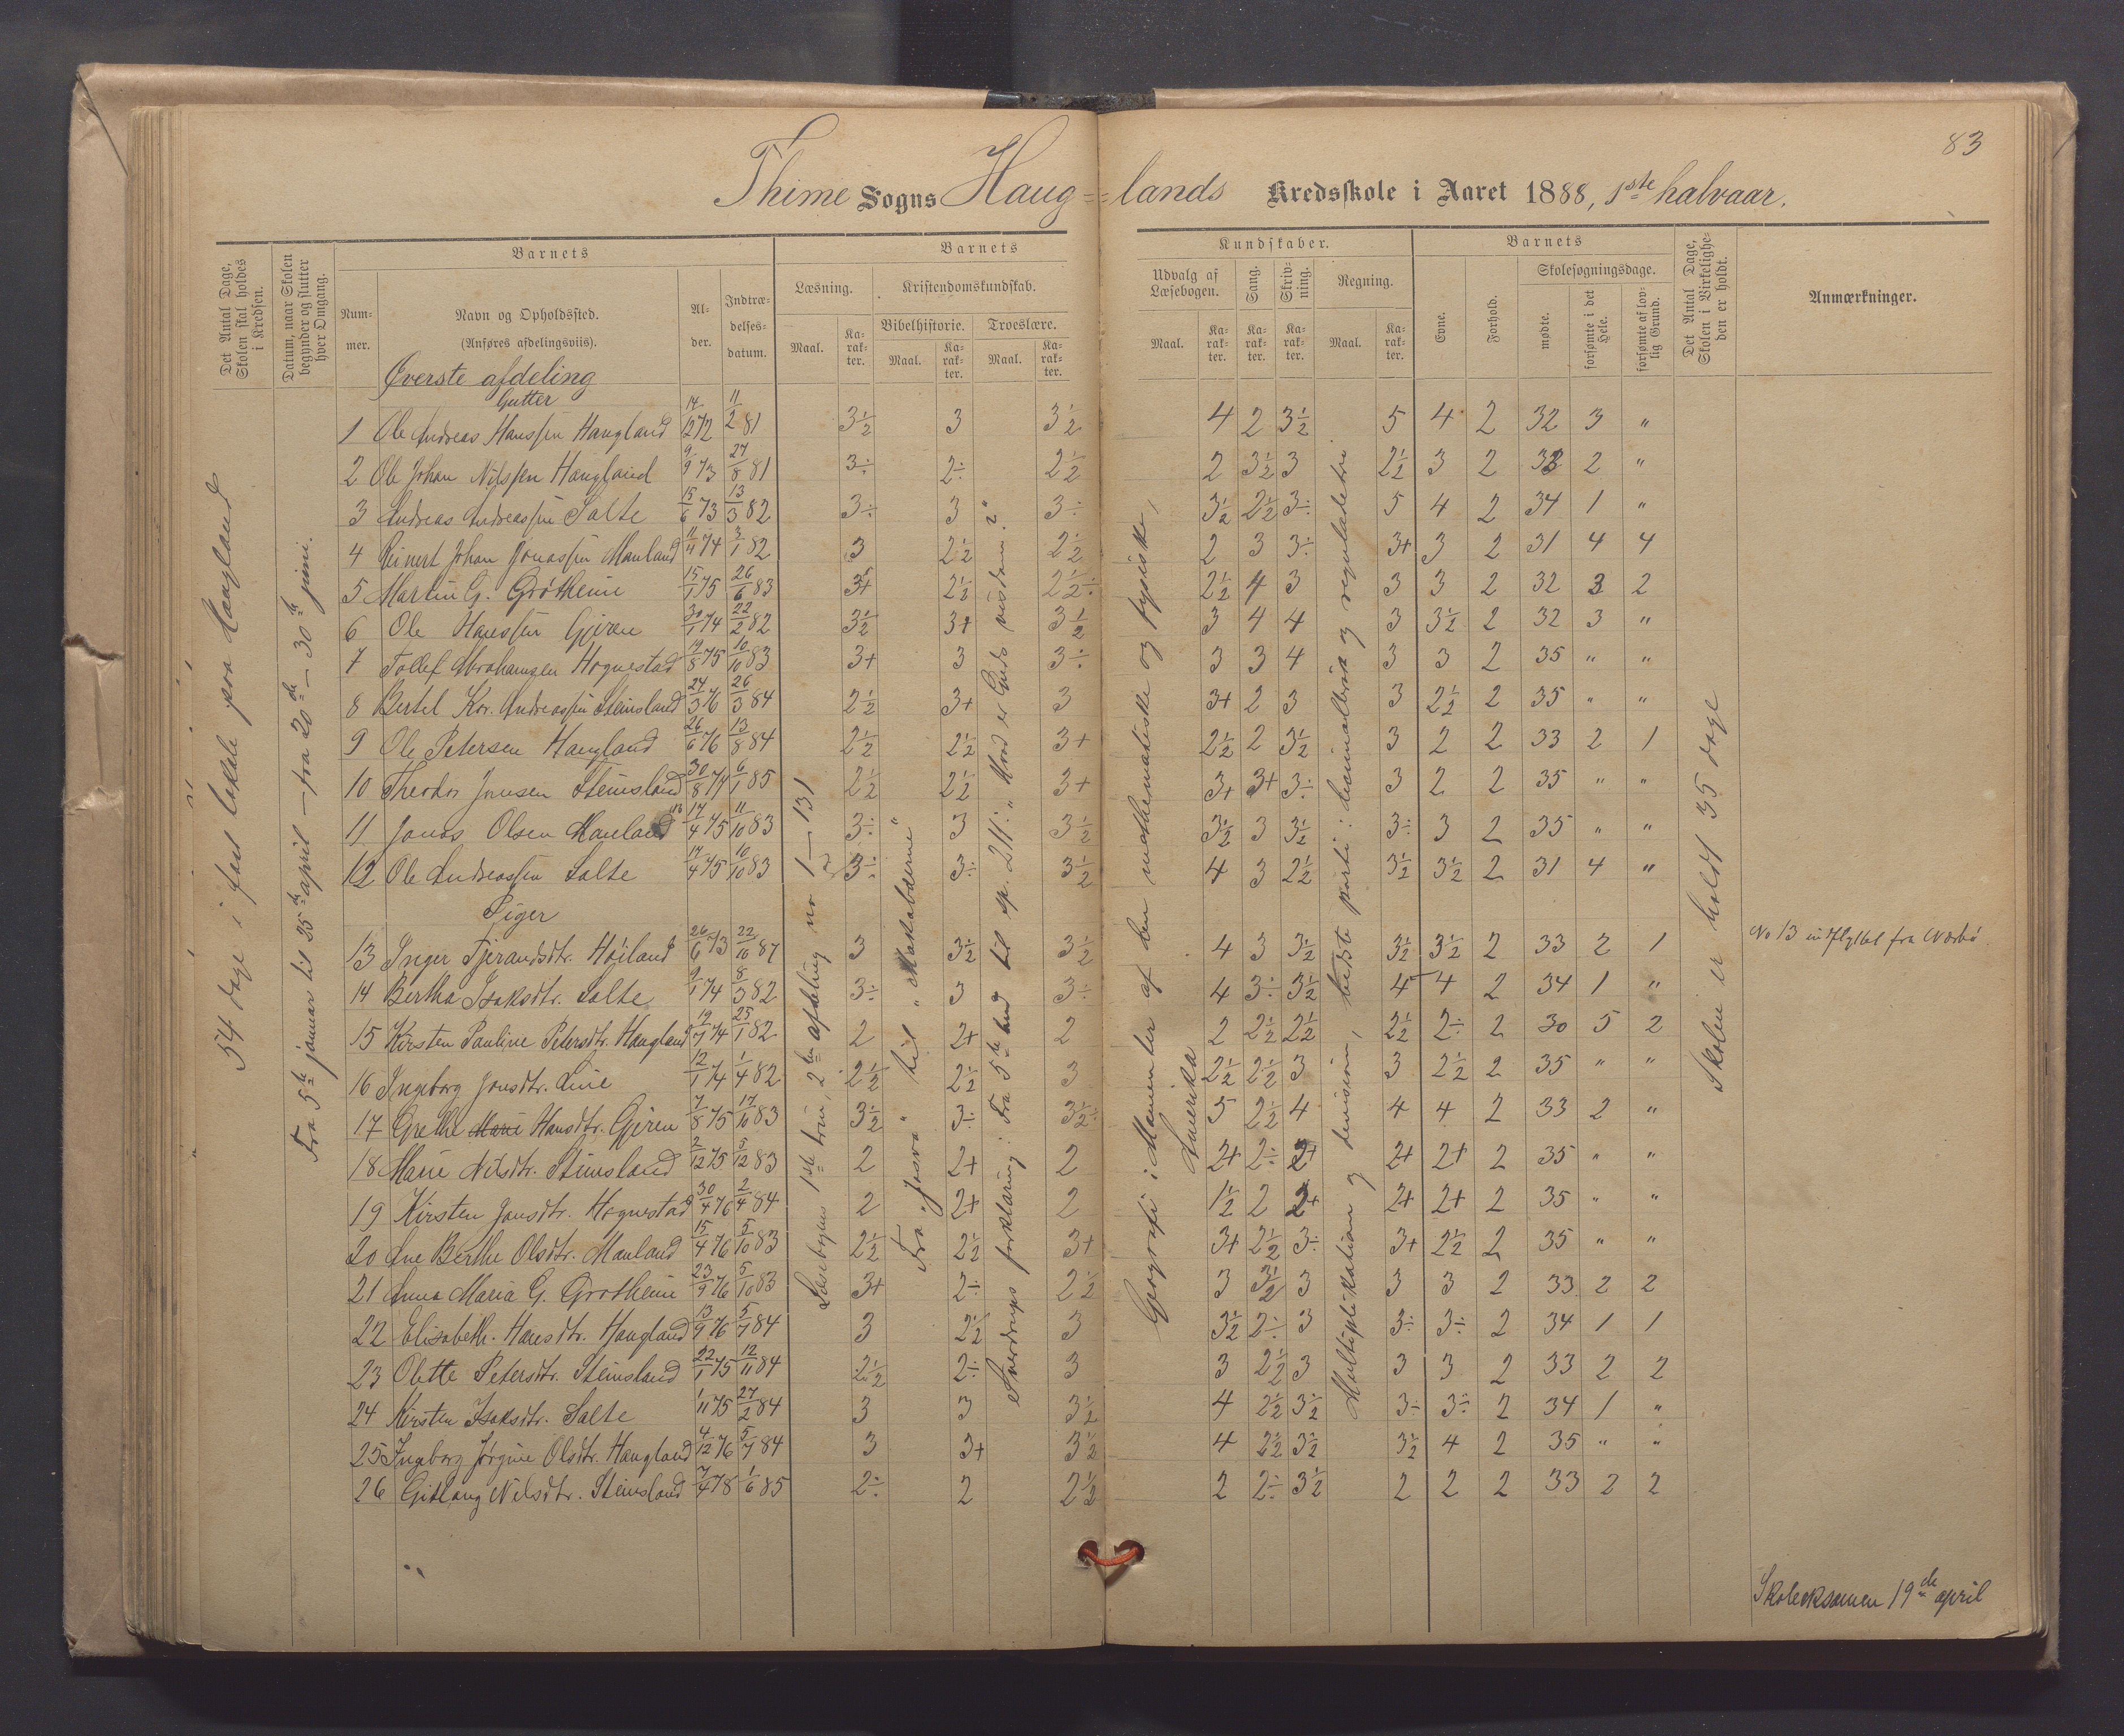 83
Thime Sogns Haug=lands Kredsskole i Aaret 1888, 1ste halvaar.
Det Antal Dage, Skolen skal holdes i Kredsen.
Datum, naar Skolen begynder og slutter hver Omgang.
Barnets
Nummer.
Navn og Opholdssted.
(Anføres afdelingsviis).
Alder.
Indtrædelsesdatum.
Barnets Kundskaber.
Læsning.
Maal.
Karakter.
Kristendomskundskab.
Bibelhistorie.
Maal.
Karakter.
Troeslære.
Maal.
Karakter.
Udvalg af Læsebogen.
Maal.
Karakter.
Sang.
Karakter.
Skrivning.
Karakter.
Regning.
Maal.
Karakter.
Barnets
Evne.
Forhold.
Skolesøgningsdage.
mødte.
forsømte i det Hele.
forsømte af lovlig Grund.
Det Antal Dage, Skolen i Virkeligheden er holdt.
Anmærkninger.
54 dage i fast lokale paa Haugland
Fra 5te januar til 25de april — fra 20de — 30te juni.
Læsebogens 1ste trin, 2den afdeling no 1—131
Fra „Josva" til „Makabæerne"
Sverdrups forklaring: Fra 5te bud til sp. 211: „Hvad er Guds visdom?"
Geografi: Elementer af den mathematiske og fysiske, Amerika
Multiplikation og division, bedste parti: decimalbrøk og reguladetri.
Skolen er holdt 35 dage
Øverste afdeling
Gutter
1 Ole Andreas Hanssen Haugland 14/12 72 11/2 81 3½ 3 3½ 4 2 3½ 5 4 2 32 3 "
2 Ole Johan Nilssen Haugland 9/9 73 27/8 81 3÷ 2÷ 2½ 2 3½ 3 2½ 3 2 33 2 "
3 Andreas Andreassen Salte 15/6 73 13/3 82 3÷ 3 3÷ 3½ 2½ 3÷ 5 4 2 34 1 "
4 Reinert Johan Jonassen Mauland 11/4 74 3/1 82 3 2½ 2½ 2 3 3÷ 3+ 3 2 31 4 4
5 Martin G. Grötheim 15/1 75 26/6 83 3+ 2½ 2½÷ 2½ 4 3 3 3 2 32 3 2
6 Ole Hanssen Gjeren 30/1 74 22/2 82 3½ 3+ 3½ 3 4 4 3 3½ 2 32 3 "
7 Tollef Abrahamsen Hognestad 19/8 75 10/10 83 3+ 3 3÷ 3 3 4 3 3 2 35 " "
8 Bertel Kor. Andreassen Stensland 24/3 76 26/3 84 2½ 3+ 3 3+ 2 3 3 2½ 2 35 " "
9 Ole Petersen Haugland 26/6 76 13/8 84 2½ 2½ 3+ 2½ 2 3½ 3 2 2 33 2 1
10 Theodor Jonsen Stensland 30/8 74 6/1 85 2½ 2½ 3+ 3+ 3+ 3÷ 3 2 2 35 " "
11 Jonas Olsen Mauland 14/4 75 11/10 83 3÷ 3 3½ 3½ 3 3½ 3÷ 3 2 35 " "
12 Ole Andreassen Salte 14/4 75 10/10 83 3÷ 3÷ 3½ 4 3 2½ 3½ 3½ 2 31 4 "
Piger
13 Inger Tjerandsdtr. Höiland 26/6 73 22/10 87 3 3½ 3½ 4 3 3½ 3½ 3½ 2 33 2 1 No 13 indflyttet fra Nærbö
14 Bertha Isaksdtr. Salte 9/1 74 8/3 82 3÷ 3 3÷ 4 3÷ 3½ 4 4 2 34 1 "
15 Kirsten Pauline Petersdtr. Haugland 19/7 74 25/1 82 2 2+ 2 2 2½ 2½ 2½ 2÷ 2 30 5 2
16 Ingeborg Jonsdtr. Line 12/1 74 1/4 82 2½ 2½ 3 2½ 2½ 3 3 2½ 2 35 " "
17 Grethe Marie Hansdtr. Gjeren 7/8 75 17/10 83 3½ 3÷ 3½÷ 5 2½ 4 4 4 2 33 2 "
18 Marie Nilsdtr. Stensland 2/12 75 5/12 83 2 2+ 2 2+ 2÷ 2+ 2+ 2+ 2 35 " "
19 Kirsten Jonsdtr. Hognestad 30/4 76 2/4 84 2 2+ 2 1½ 2 2+ 2+ 2+ 2 35 " "
20 Ane Berthe Olsdtr. Mauland 15/4 76 5/10 83 2½ 2½ 3+ 3+ 2½ 3÷ 3+ 2½ 2 35 " "
21 Anna Maria G. Grotheim 23/9 76 5/10 83 3+ 2÷ 2½ 3 3½ 3 3 3 2 33 2 2
22 Elisabeth Hansdtr. Haugland 13/9 76 5/7 84 3 2½ 3 3½ 2÷ 3 3÷ 3÷ 2 34 1 1
23 Olette Petersdtr. Stensland 22/1 75 12/11 84 2½ 2÷ 3 3 2½ 3 3 3 2 33 2 2
24 Kirsten Isaksdtr. Salte 1/11 75 27/2 84 3 3 3½ 4 2½ 3½ 3÷ 3÷ 2 34 1 "
25 Ingeborg Jörgine Olsdtr. Haugland 4/12 76 5/7 84 3 3+ 3½ 4 2½ 3½ 3½ 4 2 35 " "
26 Gitlaug Nilsdtr. Stensland 7/4 78 1/6 85 2÷ 2 2½ 2 2÷ 3½ 2 2 2 33 2 2
Skoleeksamen 19de april